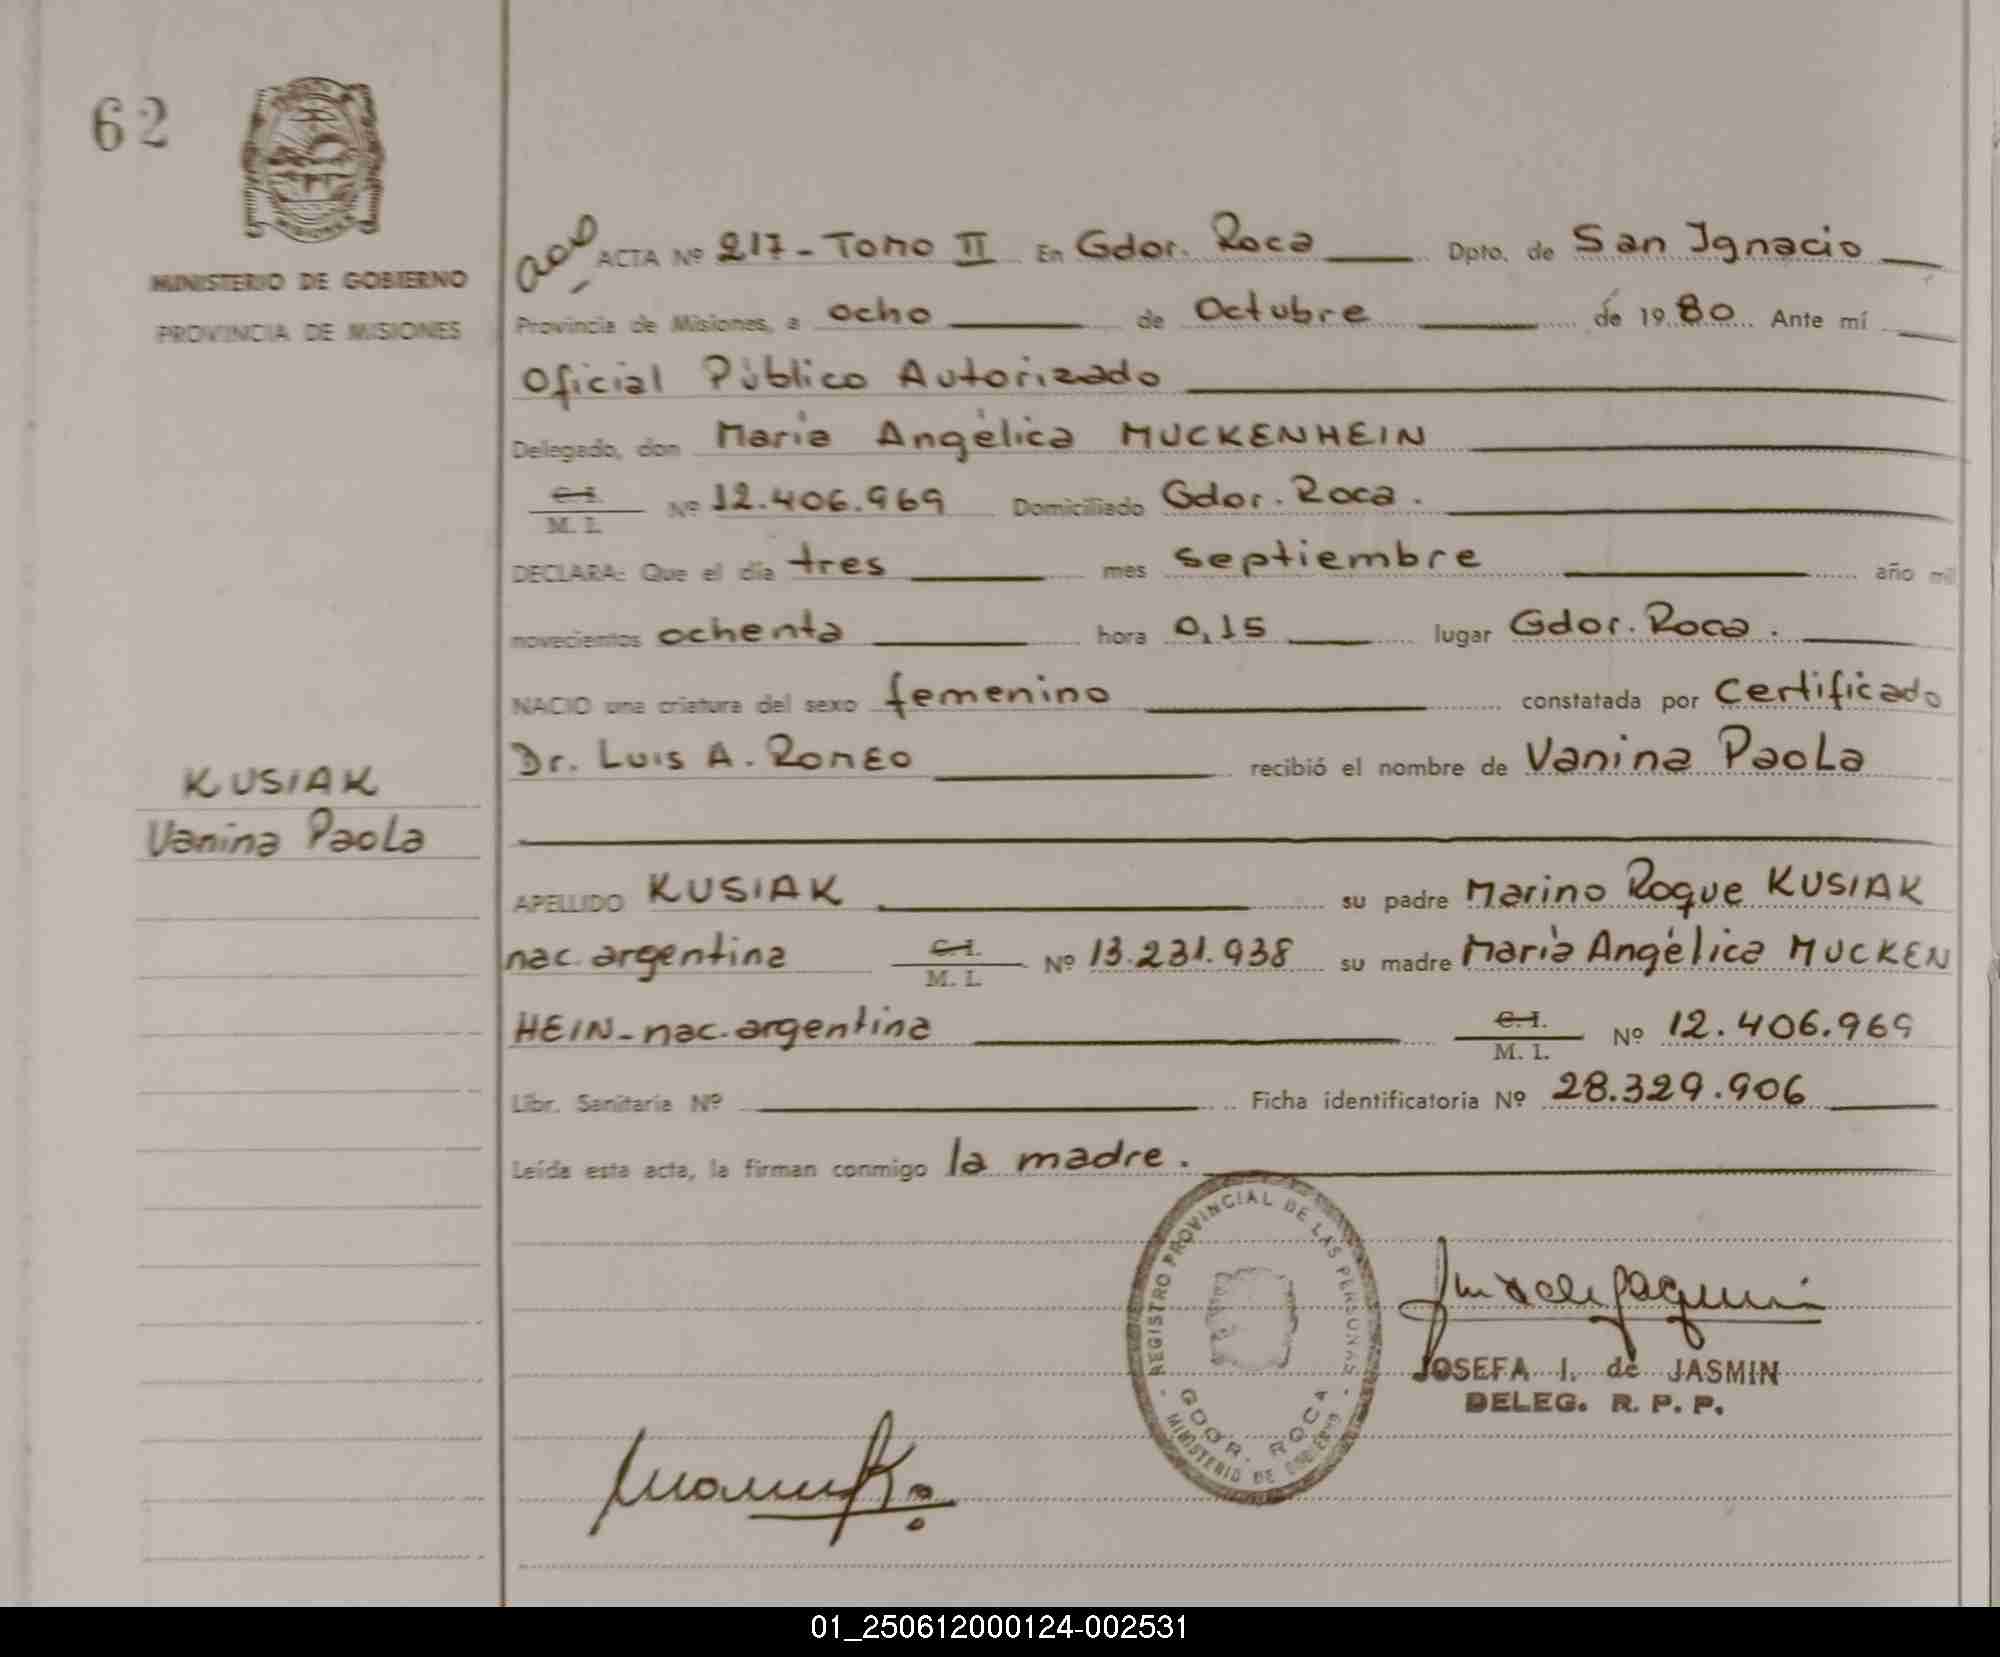 62
MINISTERIO DE GOBIERNO
PROVINCIA DE MISIONES
ACTA Nº 217 - Tomo II En Gdor. Roca Dpto. de San Ignacio
Provincia de Misiones, a ocho de Octubre de 1980 Ante mí
Oficial Público Autorizado
Delegado, don María Angélica MUCKENHEIN
C. I.
M. I. Nº 12.406.969 Domiciliado Gdor. Roca.
DECLARA: Que el día tres mes septiembre año mil
novecientos ochenta hora 0,15 lugar Gdor. Roca.
NACIO una criatura del sexo femenino constatada por Certificado
Dr. Luis A. Romeo recibió el nombre de Vanina Paola
KUSIAK
Vanina Paola
APELLIDO KUSIAK su padre Marino Roque KUSIAK
nac. argentina C. I. M. I. Nº 13.231.938 su madre María Angélica MUCKEN
HEIN - nac. argentina C. I. M. I. Nº 12.406.969
Libr. Sanitaria Nº Ficha identificatoria Nº 28.329.906
Leída esta acta, la firman conmigo la madre.
REGISTRO PROVINCIAL DE LAS PERSONAS
GDOR. ROCA
MINISTERIO DE GOBIERNO
JOSEFA I. de JASMIN
DELEG. R. P. P.
01_250612000124-002531